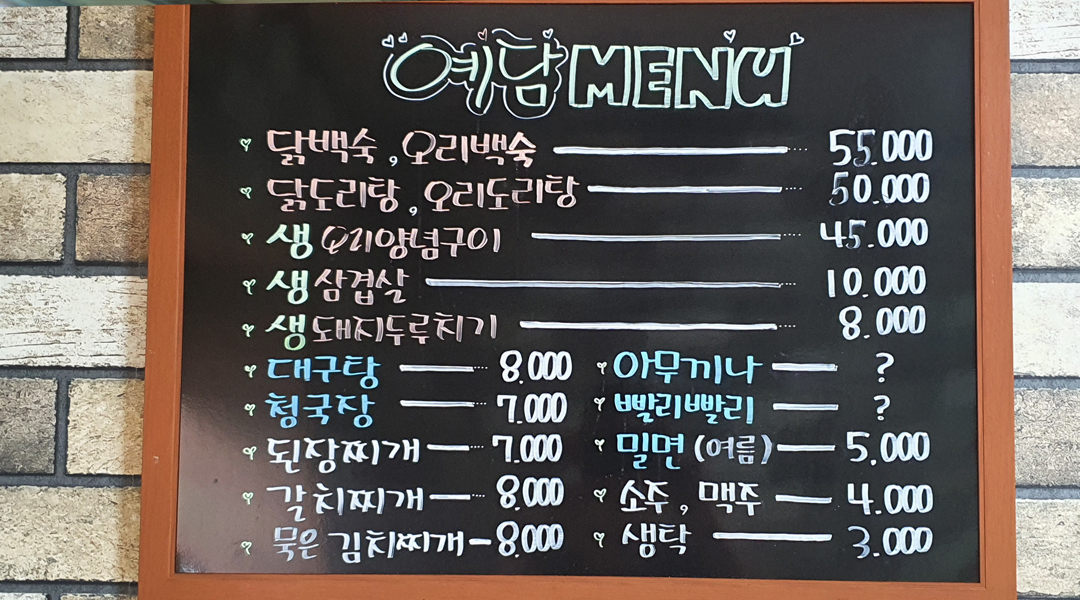 예담 MENU
닭백숙, 오리백숙 55.000
닭도리탕, 오리도리탕 50.000
생오리양념구이 45.000
생삼겹살 10.000
생돼지두루치기 8.000
대구탕 8.000
청국장 7.000
된장찌개 7.000
갈치찌개 8.000
묵은 김치찌개 8.000
아무끼나 ?
빨리빨리 ?
밀면 (여름) 5,000
소주, 맥주 4.000
생탁 3.000